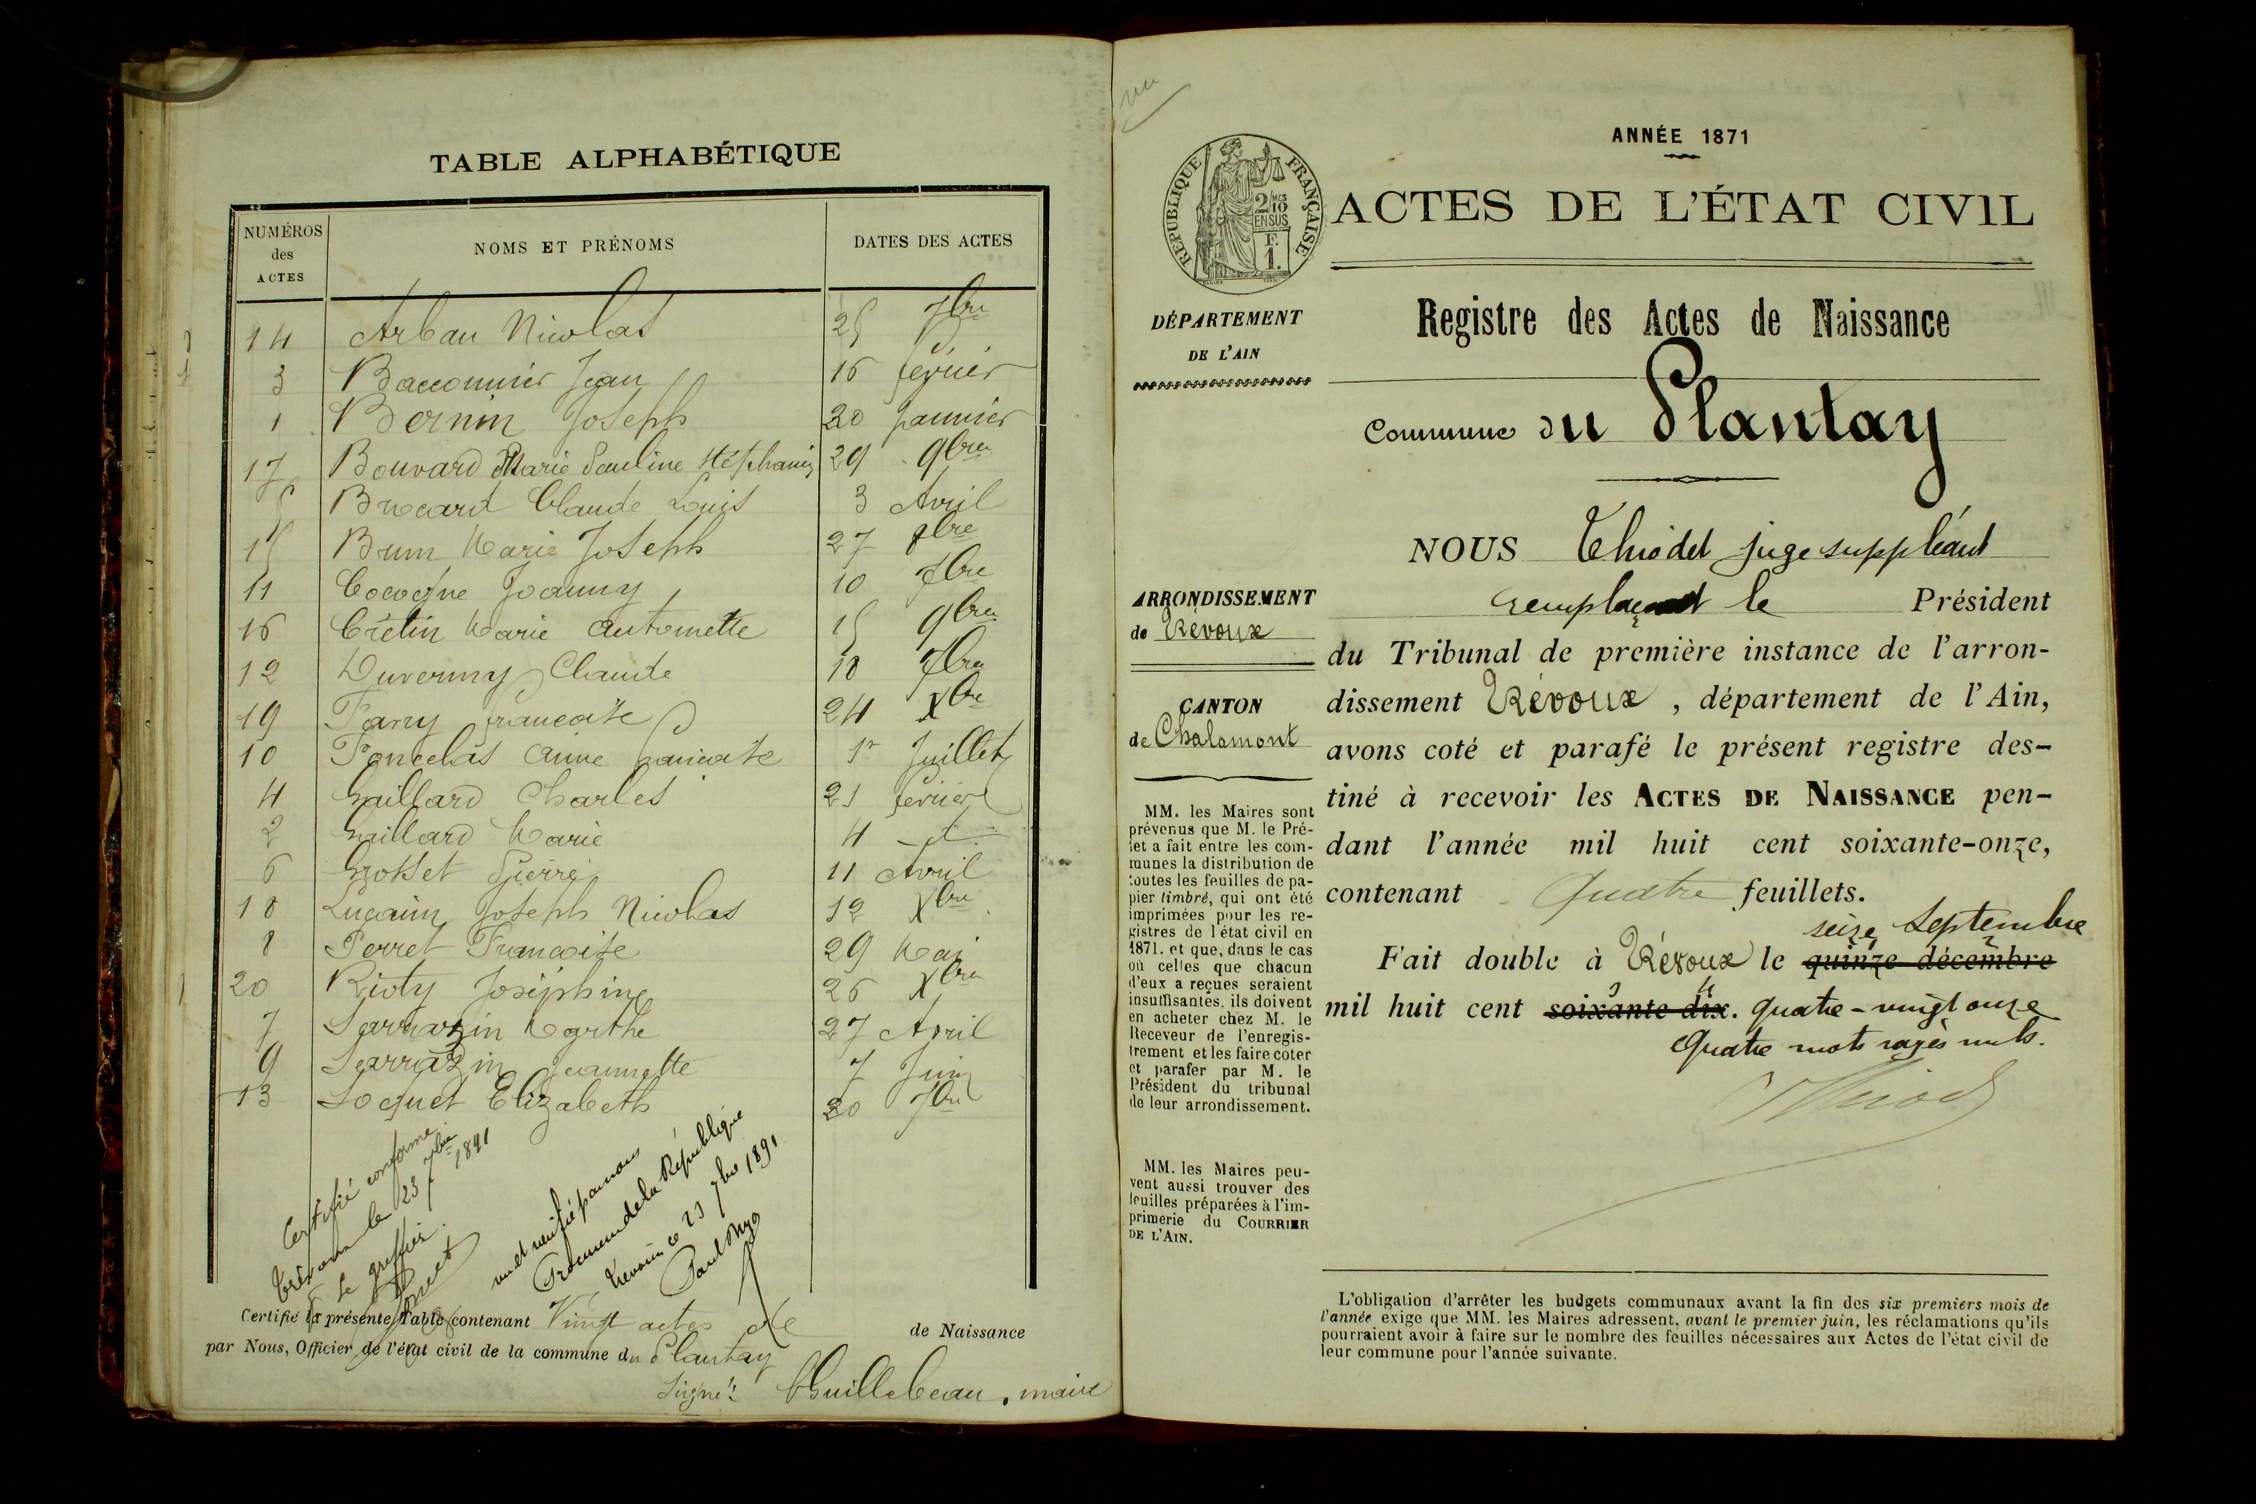 TABLE ALPHABÉTIQUE
NUMÉROS des ACTES NOMS ET PRÉNOMS DATES DES ACTES
14 Arban Nicolas 25 7bre
3 Bacconnier Jean 16 février
1 Bernin Joseph 20 janvier
17 Bouvard Marie Pauline Stéphanie 29 9bre
5 Brocard Claude Louis 3 Avril
15 Brun Marie Joseph 27 8bre
11 Cocogne Joanny 10 7bre
16 Crétin Marie Antoinette 15 9bre
12 Duvernay Claude 18 7bre
19 Farry françoise 24 Xbre
10 Fonechas Anne françoise 1r Juillet
4 Gaillard Charles 21 février
2 Gaillard Marie 4 d
6 Grosset Pierre 11 Avril
18 Lugarin Joseph Nicolas 12 Xbre
8 Perret Françoise 29 Mai
20 Rioty Joséphine 26 Xbre
7 Sarrazin Marthe 27 Avril
9 Sarrazin Jeannette 7 Juin
13 Soquet Elizabeth 20 7bre
Certifié conforme
Trévoux le 23 7bre 1891
Le greffier
vu et vérifié par nous
Procureur de la République
Trévoux ce 23 7bre 1891
Certifié la présente Table contenant Vingt actes de de Naissance
par Nous, Officier de l'état civil de la commune du Plantay
Signé: Guillebeau, maire
vu
ANNÉE 1871
RÉPUBLIQUE FRANÇAISE
2/10 EN SUS
F. 1.
ACTES DE L'ÉTAT CIVIL
DÉPARTEMENT
DE L'AIN
Registre des Actes de Naissance
Commune du Plantay
NOUS Thiodet juge suppléant
remplaçant le Président
ARRONDISSEMENT
de Trévoux
du Tribunal de première instance de l'arron-
dissement Trévoux, département de l'Ain,
avons coté et parafé le présent registre des-
tiné à recevoir les ACTES DE NAISSANCE pen-
dant l'année mil huit cent soixante-onze,
contenant Quatre feuillets.
seize Septembre
Fait double à Trévoux le quinze décembre
mil huit cent soixante dix. quatre-vingt onze
Quatre mots rayés nuls.
CANTON
de Chalamont
MM. les Maires sont
prévenus que M. le Pré-
fet a fait entre les com-
munes la distribution de
toutes les feuilles de pa-
pier timbré, qui ont été
imprimées pour les re-
gistres de l'état civil en
1871. et que, dans le cas
où celles que chacun
d'eux a reçues seraient
insuffisantes, ils doivent
en acheter chez M. le
Receveur de l'enregis-
trement et les faire coter
et parafer par M. le
Président du tribunal
de leur arrondissement.
MM. les Maires peu-
vent aussi trouver des
feuilles préparées à l'im-
primerie du COURRIER
DE L'AIN.
L'obligation d'arrêter les budgets communaux avant la fin des six premiers mois de
l'année exige que MM. les Maires adressent, avant le premier juin, les réclamations qu'ils
pourraient avoir à faire sur le nombre des feuilles nécessaires aux Actes de l'état civil de
leur commune pour l'année suivante.